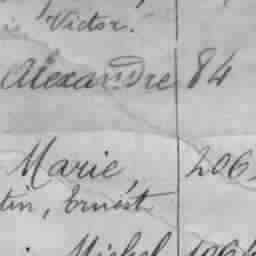 Victor.
Alexandre 84
Marie, 206
tin, Ernest
Michel